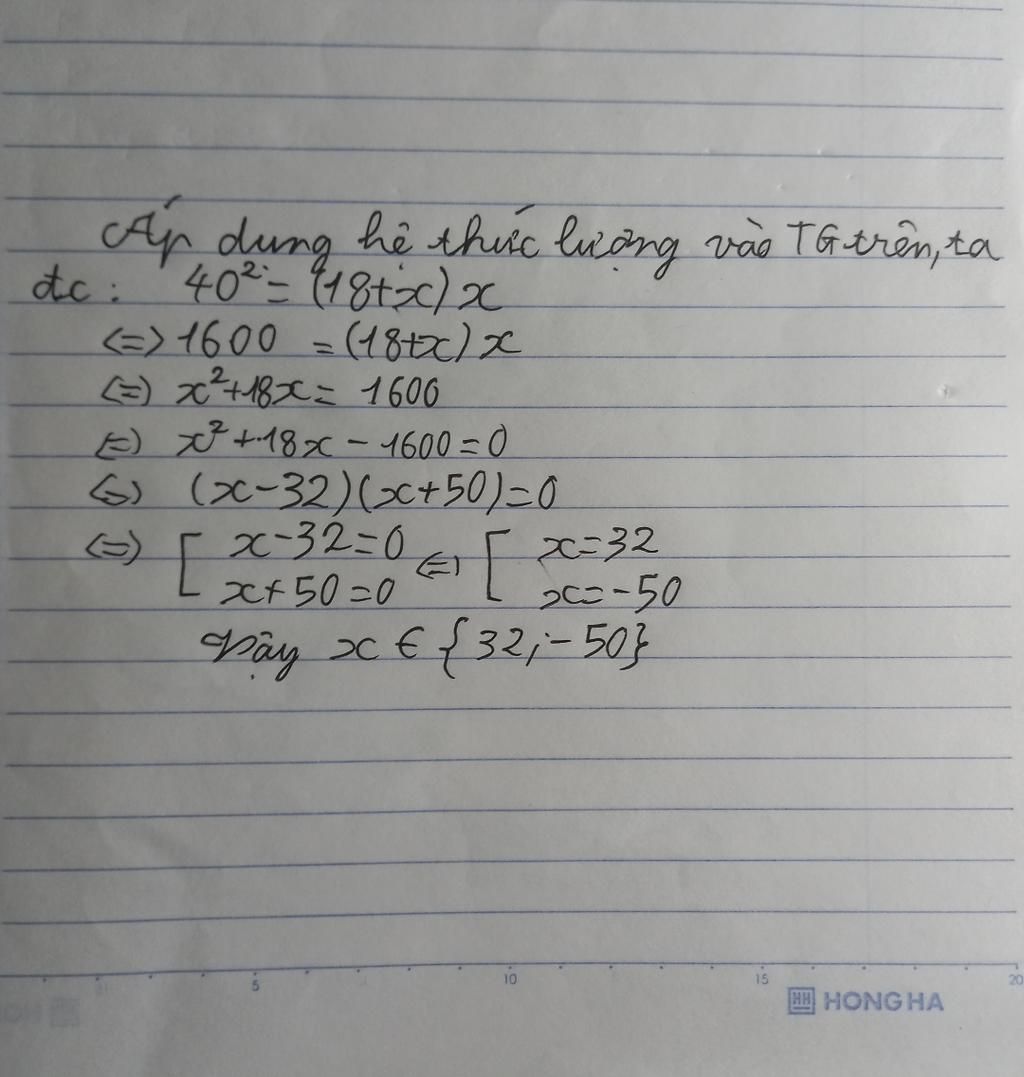 Áp dụng hệ thức lượng vào TG trên, ta
đc: 40² = (18+x)x
<=> 1600 = (18+x)x
<=> x²+18x = 1600
<=> x²+18x - 1600 = 0
<=> (x-32)(x+50)=0
<=> [ x-32=0 <=> [ x=32
x+50=0 x=-50
Vậy x ∈ {32;-50}
5 10 15 20
HONG HA